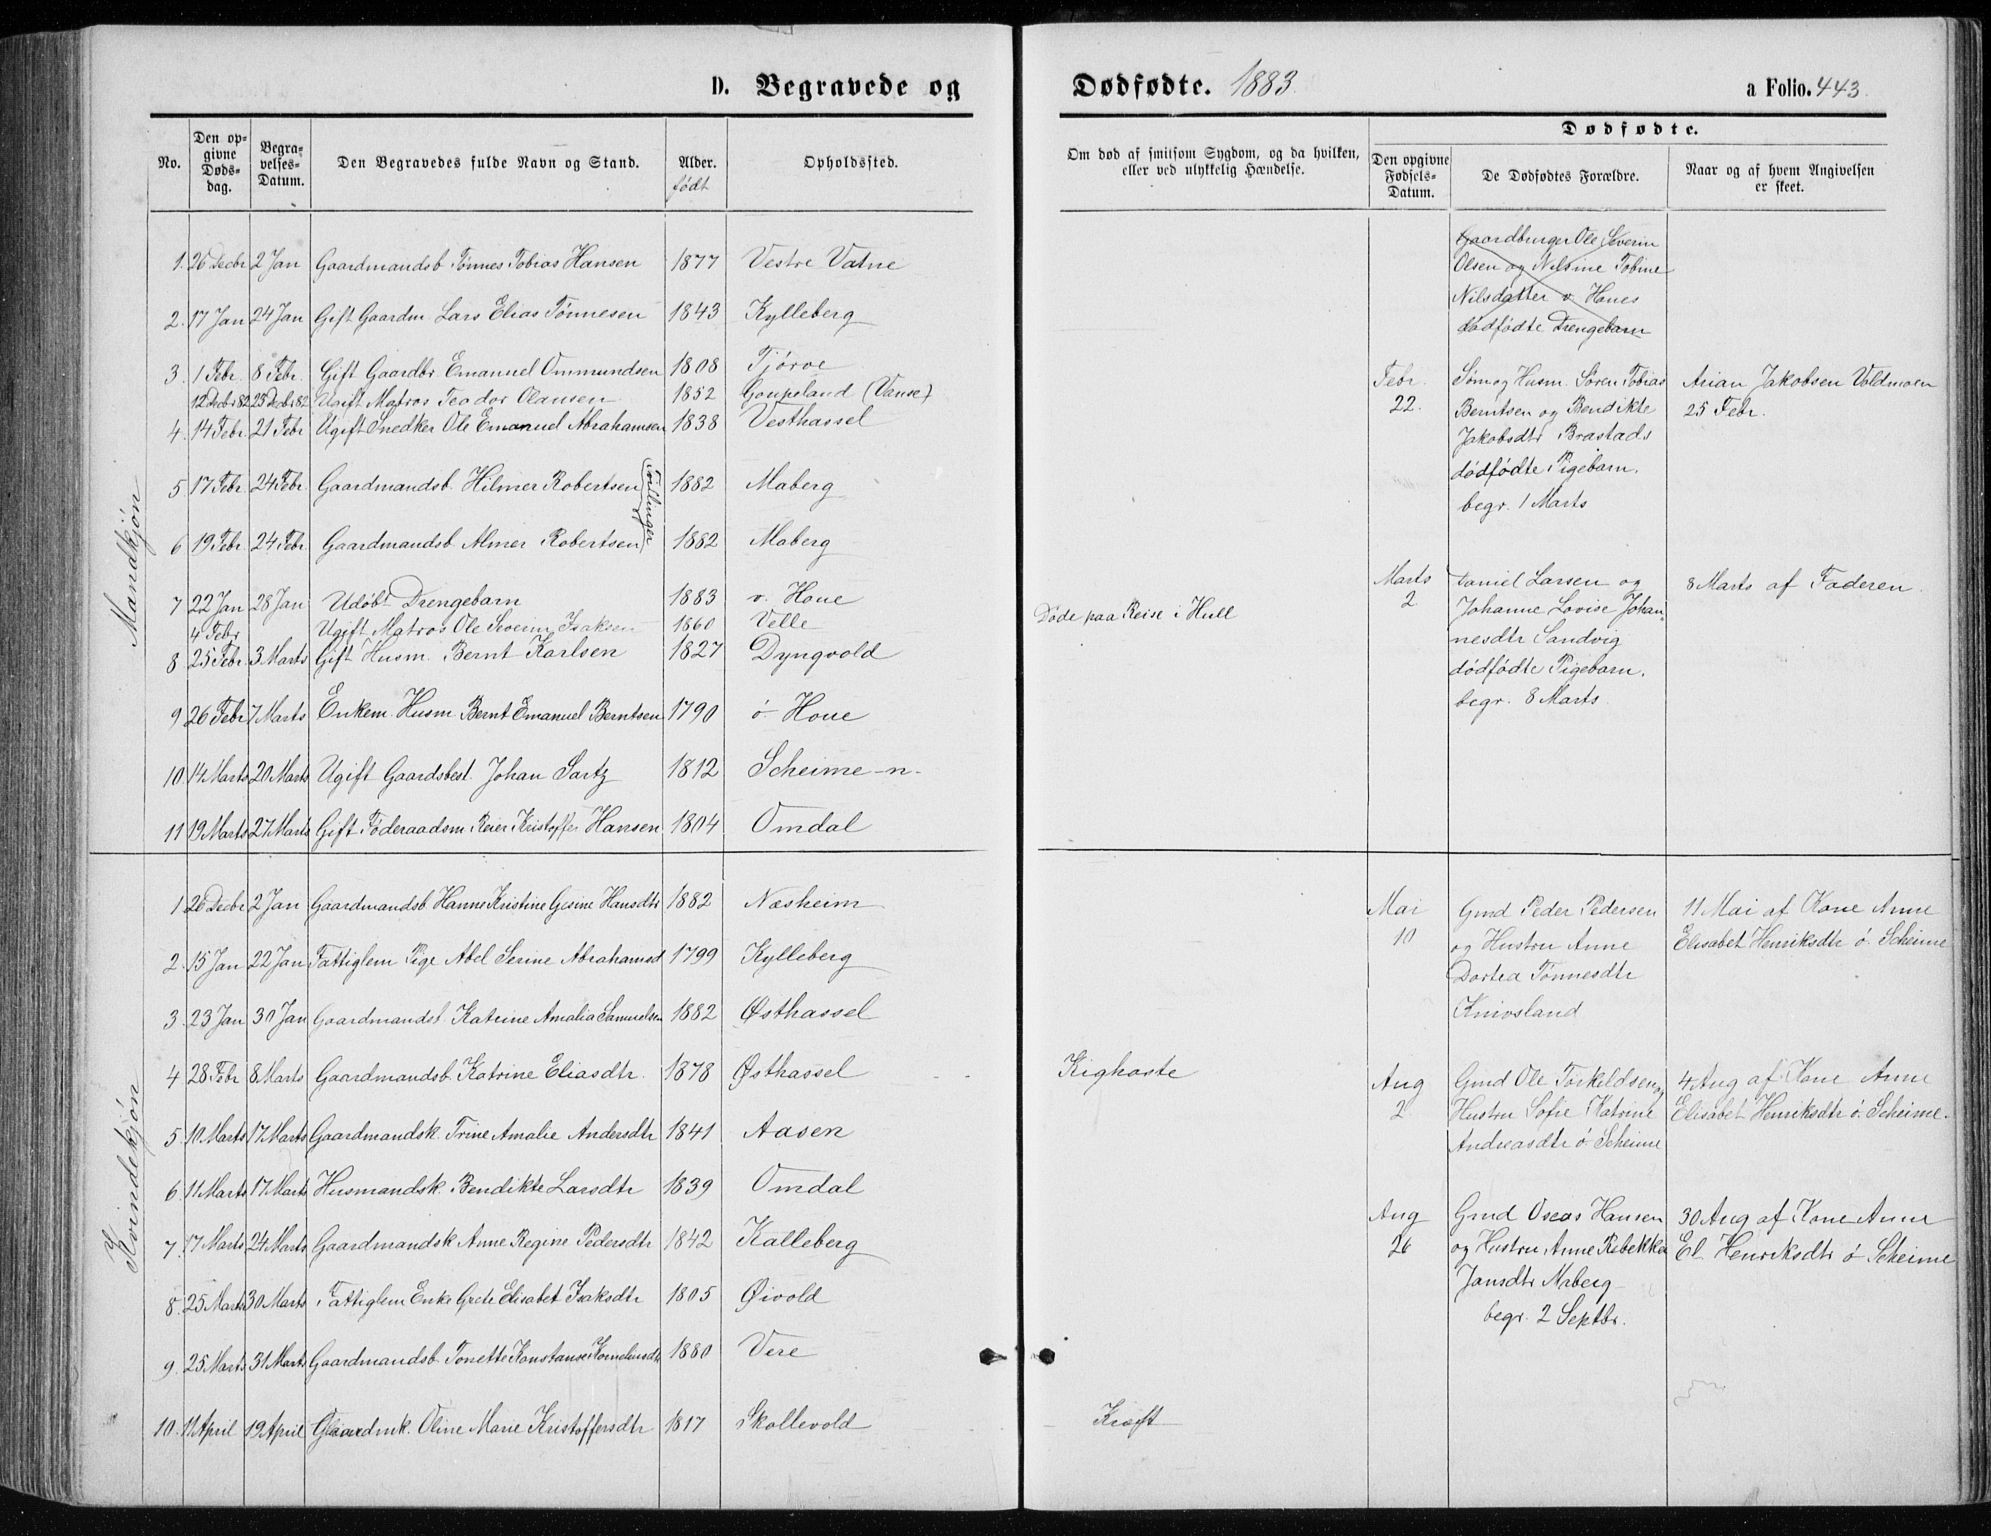 D. Begravede og
Dødfødte. 1883.
a Folio. 443.
No.
Den opgivne Dødsdag.
Begravelses-Datum.
Den Begravedes fulde Navn og Stand.
Alder. født
Opholdssted.
Om død af smitsom Sygdom, og da hvilken, eller ved ulykkelig Hændelse.
Dødfødte.
Den opgivne Fødsels-Datum.
De Dødfødtes Forældre.
Naar og af hvem Angivelsen er skeet.
Mandkjøn
1. 26 Decbr 2 Jan Gaardmandsb. Tønnes Tobias Hansen 1877 Vestre Vatne
2. 17 Jan 24 Jan Gift Gaardm. Lars Elias Tønnesen 1843 Kylleberg
3. 1 Febr. 8 Febr. Gift Gaardbr. Emanuel Ommundsen 1808 Tjørve
12 Decbr 82 25 Decbr 82 Ugift Matros Teodor Olausen 1852 Goupsland (Vanse)
4. 14 Febr. 21 Febr Ugift Snedker Ole Emanuel Abrahamsen 1838 Vesthassel
5 17 Febr. 24 Febr. Gaardmandsb. Hilmer Robertsen 1882 Maberg
(Tvillinger)
6 19 Febr. 24 Febr. Gaardmandsb Almer Robertsen 1882 Maberg
7 22 Jan 28 Jan Udøbt Drengebarn 1883 v. Houe
4 Febr Ugift Matros Ole Severin Isaksen 1860 Velle Døde paa Reise i Hull
8 25 Febr. 3 Marts Gift Husm. Bernt Karlsen 1827 Dyngvold
9 26 Febr 7 Marts Enkem. Husm. Bernt Emanuel Berntsen 1790 ø. Houe
10. 14 Marts 20 Marts Ugift Gaardsbest. Johan Sartz 1812 Scheime -n-
11 19 Marts 27 Marts Gift Føderaadsm Reier Kristoffer Hansen 1804 Omdal
Gaardbruger Ole Severin
Olsen og Nilsine Tobine
Nilsdatter v. Hones
dødfødte Drengebarn
Febr. 22. Sømog Husm. Søren Tobias
Berntsen og Bendikte
Jakobsdtr Brastads
dødfødte Pigebarn.
begr. 1 Marts
Arian Jakobsen Voldmoen
25 Febr.
Marts 2 Daniel Larsen og
Johanne Lovise Johan-
nesdtr Sandvig
dødfødte Pigebarn.
begr. 8 Marts.
8 Marts af Faderen.
Kvindekjøn
1 26 Decbr 2 Jan Gaardmandsb. Hanne Kristine Gesine Hansdtr 1882 Næsheim
2. 15 Jan 22 Jan Fattiglem Pige Abel Serine Abrahamsd 1799 Kylleberg
3. 23 Jan 30 Jan Gaardmandsb. Katrine Amalia Samuelsen 1882 Østhassel
4 28 Febr 8 Marts Gaardmandsb. Katrine Eliasdtr. 1878 Østhassel Kighoste
5. 10 Marts 17 Marts Gaardmandsk. Trine Amalie Andersdtr 1841 Aasen
6. 11 Marts 17 Marts Husmandsk. Bendikte Larsdtr 1839 Omdal
7. 17 Marts 24 Marts Gaardmandsk Anne Regine Pedersdtr 1842 Kalleberg
8. 25 Marts 30 Marts Fattiglem Enke Grete Elisabet Isaksdtr 1805 Øivold
9. 25 Marts 31 Marts Gaardmandsb. Tonette Konstanse Korneliusdtr 1880 Vere
10. 11 April 19 April Gaardmk. Oline Marie Kristoffersdtr 1817 Skollevold Kræft
Mai 10 Gmd Peder Pedersen
og Hustru Anne
Dortea Tønnesdtr
Knivsland
11 Mai af Kone Anne
Elisabet Henriksdtr ø. Scheime
Aug 2. Gmd Ole Torkildsen og
Hustru Sofie Katrine
Andreasdtr ø. Scheime
4 Aug af Kone Anne
Elisabet Henriksdtr ø. Scheime.
Aug 26 Gmd Oseas Hansen
og Hustru Anne Rebekka
Jansdtr Maberg
begr. 2 Septbr.
30 Aug af Kone Anne
El. Henriksdtr ø Scheime